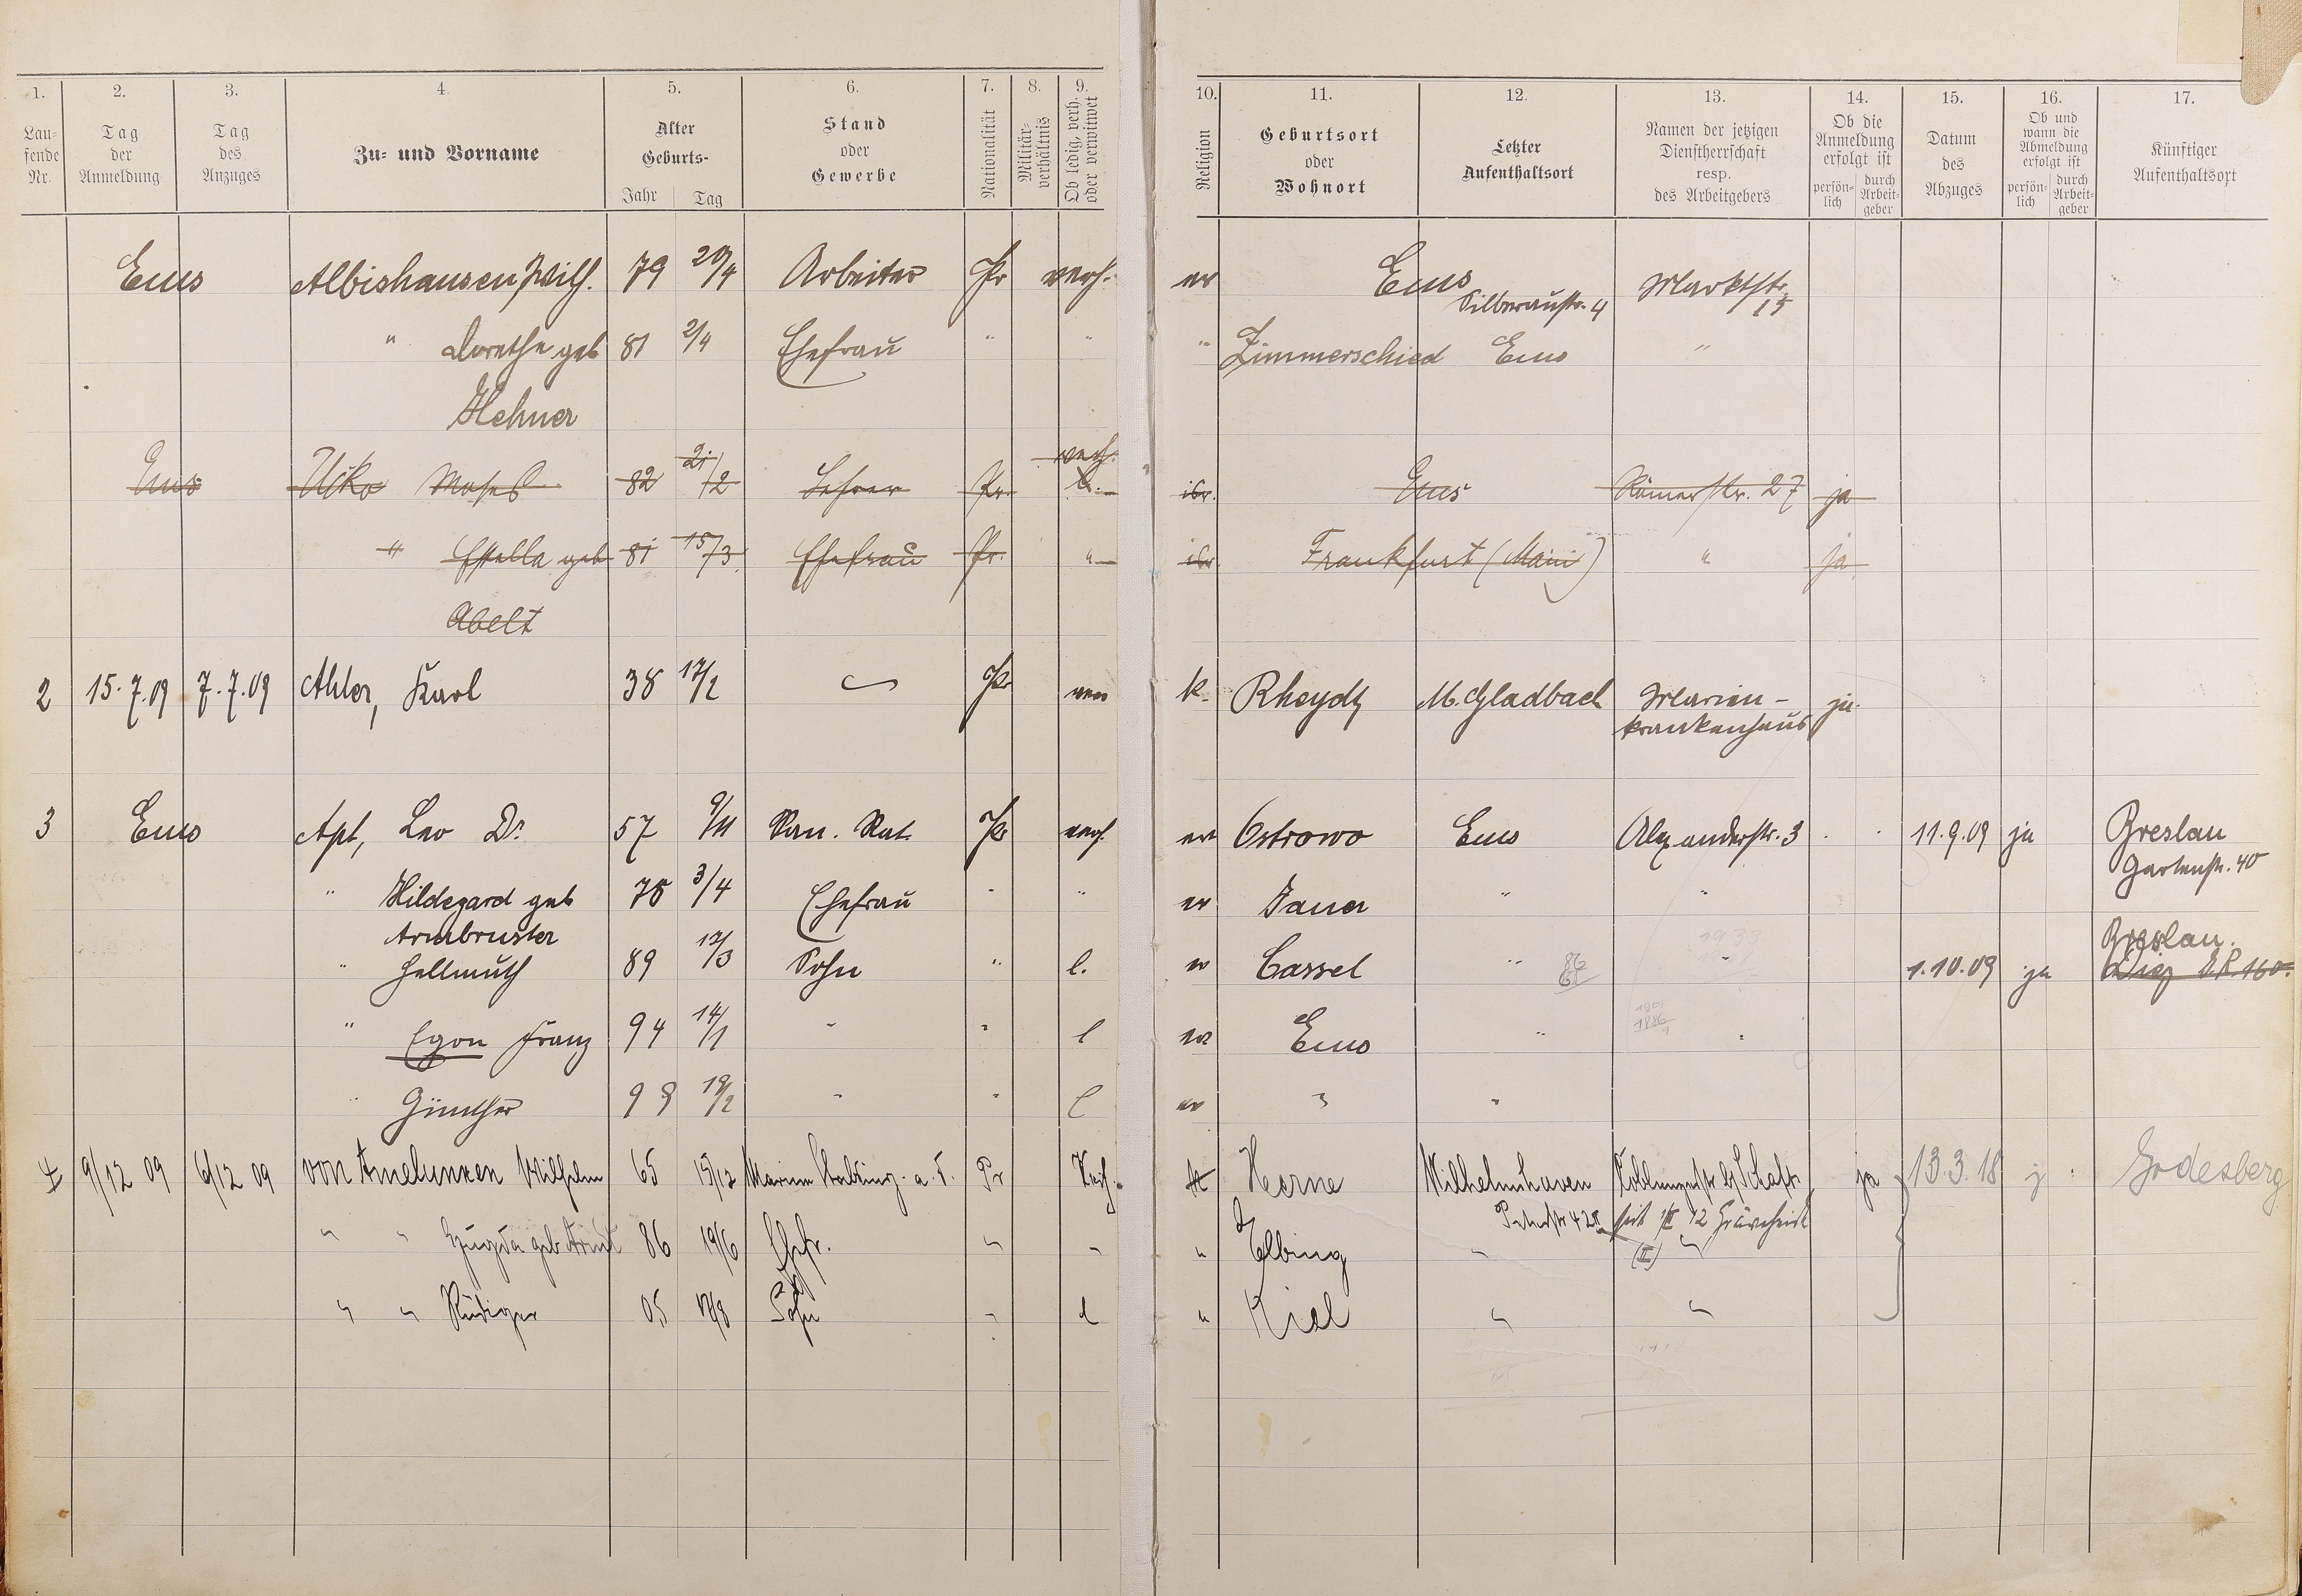 1. 2. 3. 4. 5. 6. 7. 8. 9. 10. 11. 12. 13. 14. 15. 16. 17.
Lau=
fende
Nr.
Tag
der
Anmeldung
Tag
des
Anzuges
Zu= und Vorname
Alter
Geburts-
Jahr Tag
Stand
oder
Gewerbe
Nationalität
Militär-
verhältnis
Ob ledig, verh.
oder verwitwet
Religion
Geburtsort
oder
Wohnort
Letzter
Aufenthaltsort
Namen der jetzigen
Dienstherrschaft
resp.
des Arbeitgebers
Ob die
Anmeldung
erfolgt ist
persön-
lich
durch
Arbeit-
geber
Datum
des
Abzuges
Ob und
wann die
Abmeldung
erfolgt ist
persön-
lich
durch
Arbeit-
geber
Künftiger
Aufenthaltsort
Ems Albishausen, Wilh. 79 20/4 Arbeiter Pr verh. ev Ems Marktstr.
Silberaustr. 4 15
" Dorethe geb 81 2/4 Ehefrau " " " Zimmerschied Ems "
Hehner
verh.
Ems Ucko Moses 82 21/12 Lehrer Pr. l. isr. Ems Römerstr. 27 ja
" Estella geb 81 15/3 Ehefrau Pr. " isr Frankfurt (Main) " ja
Abelt
2 15.7.09 7.7.09 Ahler, Karl 38 17/2 Pr k. Rheydt M. Gladbach Marien- ja.
krankenhaus
3 Ems Apt, Leo Dr. 57 9/11 San. Rat. Pr verh. ev Ostrowo Ems Alexanderstr. 3 11.9.09 ja Breslau
Gartenstr. 40
" Hildegard geb 75 3/4 Ehefrau " " ev Jauer " "
Armbruster
Breslau.
" Hellmuth 89 17/3 Sohn " l. ev Cassel " " 1.10.09 ja Diez I.R. 160.
" Egon Franz 94 14/1 " " l ev Ems " "
" Günther 98 19/2 " " l ev " "
4 9/12 09 6/12 09 von Amelunxen Wilhelm 65 15/12 Marine a. D. Pr Verh. k Herne Wilhelmshaven Koblenzerstr. bf Schaft. ja 13.3.18 j. Godesberg
seit 12
" " geb Arndt 86 19/6 Ehefr. " " " Elbing " (II) "
" " Rüdiger 05 17/8 Sohn " l " Kiel " "